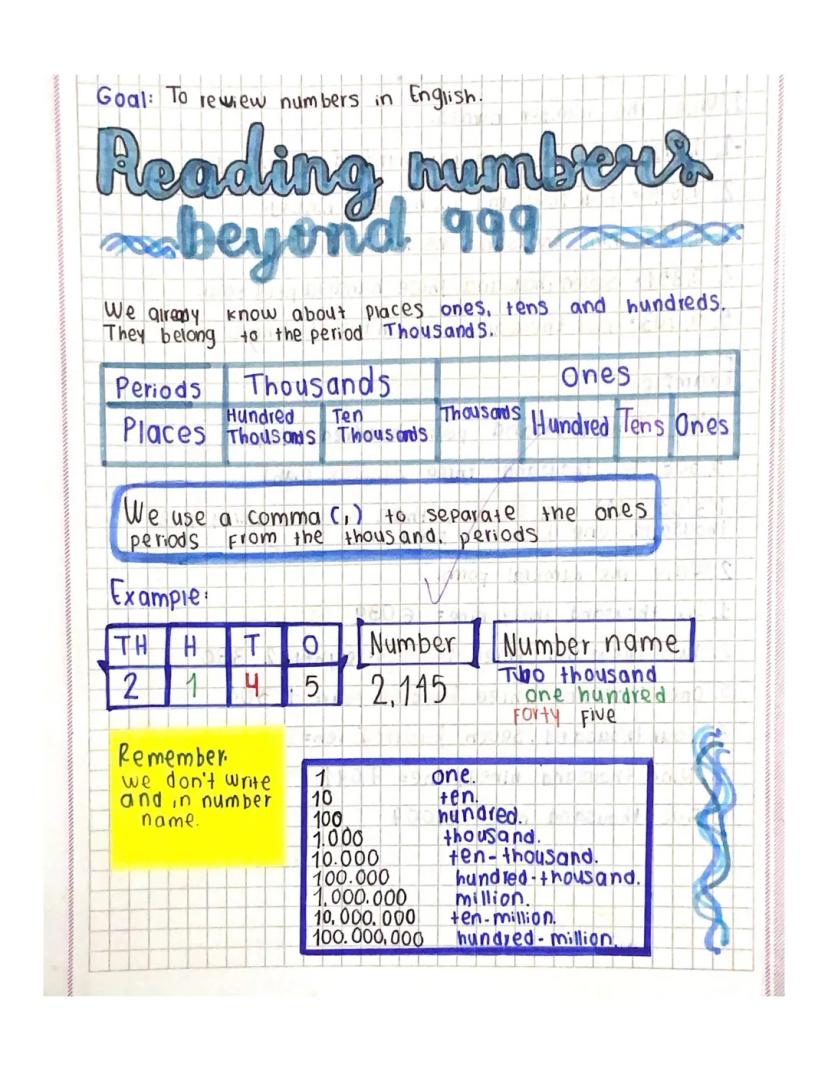 Goal: To review numbers in English.
Reading numbers
beyond 999
We already know about places ones, tens and hundreds.
They belong to the period Thousands.
Periods Thousands Ones
Places Hundred Thousands Ten Thousands Thousands Hundred Tens Ones
We use a comma (,) to separate the ones
periods from the thousand. periods
Example:
TH H T O Number Number name
2 1 4 5 2,145 Two thousand
one hundred
Forty Five
Remember.
we don't write
and in number
name.
1 one.
10 ten.
100 hundred.
1.000 thousand.
10.000 ten-thousand.
100.000 hundred-thousand.
1,000.000 million.
10,000,000 ten-million.
100.000,000 hundred-million.